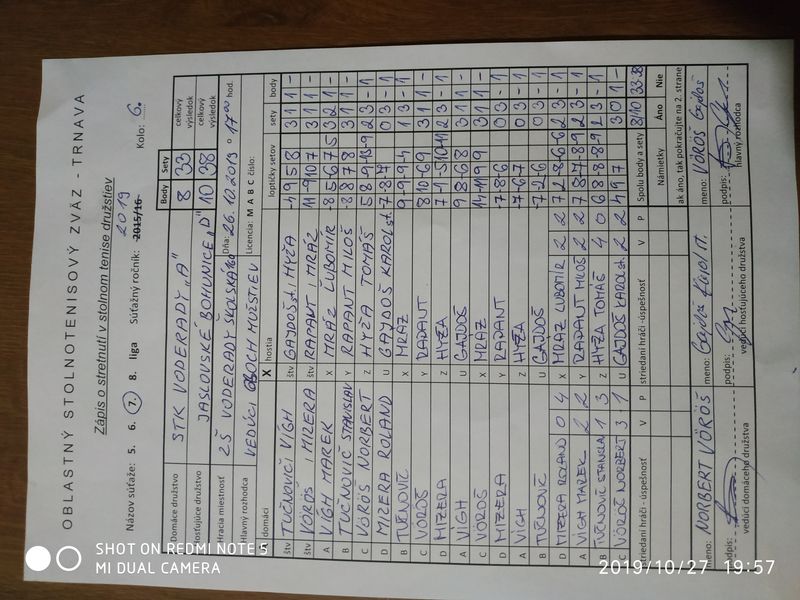 OBLASTNÝ STOLNOTENISOVÝ ZVÄZ - TRNAVA
Zápis o stretnutí v stolnom tenise družstiev
Názov súťaže: 5. 6. 7. 8. liga Súťažný ročník: 2015/16 2019 Kolo: 6.
Body Sety
Domáce družstvo STK VODERADY "A" 8 33 celkový výsledok
Hosťujúce družstvo JASLOVSKÉ BOHUNICE "D" 10 38 celkový výsledok
Hracia miestnosť ZŠ VODERADY ŠKOLSKÁ Dňa: 26.10.2019 17 00 hod.
Hlavný rozhodca VEDÚCI OBOCH MUŽSTIEV Licencia: M A B C číslo:
domáci X hostia loptičky setov sety body
štv TUČNOVIČ, VÍGH štv GAJDOŠ st. HYŽA -4 9 5 8 3 1 1 -
štv VÖRÖŠ, MIZERA štv RAPANT, MRÁZ 11 -9 10 7 3 1 1 -
A VÍGH MAREK X MRÁZ ĽUBOMÍR -8 5 6 -7 5 3 2 1 -
B TUČNOVIČ STANISLAV Y RAPANT MILOŠ -8 8 7 8 3 1 1 -
C VÖRÖŠ NORBERT Z HYŽA TOMÁŠ 2 3 - 1
D MIZERA ROLAND U GAJDOŠ KAROL st. -7 -8 -7 0 3 - 1
B TUČNOVIČ X MRÁZ 1 3 - 1
C VÖRÖŠ Y RAPANT 8 10 -6 9 3 1 1 -
D MIZERA Z HYŽA 2 3 - 1
A VÍGH U GAJDOŠ 3 1 1 -
C VÖRÖŠ X MRÁZ 3 1 1 -
D MIZERA Y RAPANT -7 -8 -6 0 3 - 1
A VÍGH Z HYŽA -7 -6 -7 0 3 - 1
B TUČNOVIČ U GAJDOŠ -7 -2 -6 0 3 - 1
D MIZERA ROLAND 0 4 X MRÁZ ĽUBOMÍR 2 2 7 2 -8 -6 -6 2 3 - 1
A VÍGH MAREK 2 2 Y RAPANT MILOŠ 2 2 2 3 - 1
B TUČNOVIČ STANISLAV 1 3 Z HYŽA TOMÁŠ 4 0 2 3 - 1
C VÖRÖŠ NORBERT 3 1 U GAJDOŠ KAROL st. 2 2 4 9 7 3 0 1 -
striedaní hráči -úspešnosť V P striedaní hráči -úspešnosť V P Spolu body a sety 8/10 33-38
Námietky Áno Nie
ak áno, tak pokračujte na 2. strane
meno: NORBERT VÖRÖŠ meno: meno: VÖRÖŠ
podpis: podpis: podpis:
vedúci domáceho družstva vedúci hosťujúceho družstva hlavný rozhodca
SHOT ON REDMI NOTE 5
MI DUAL CAMERA
2019/10/27 19:57